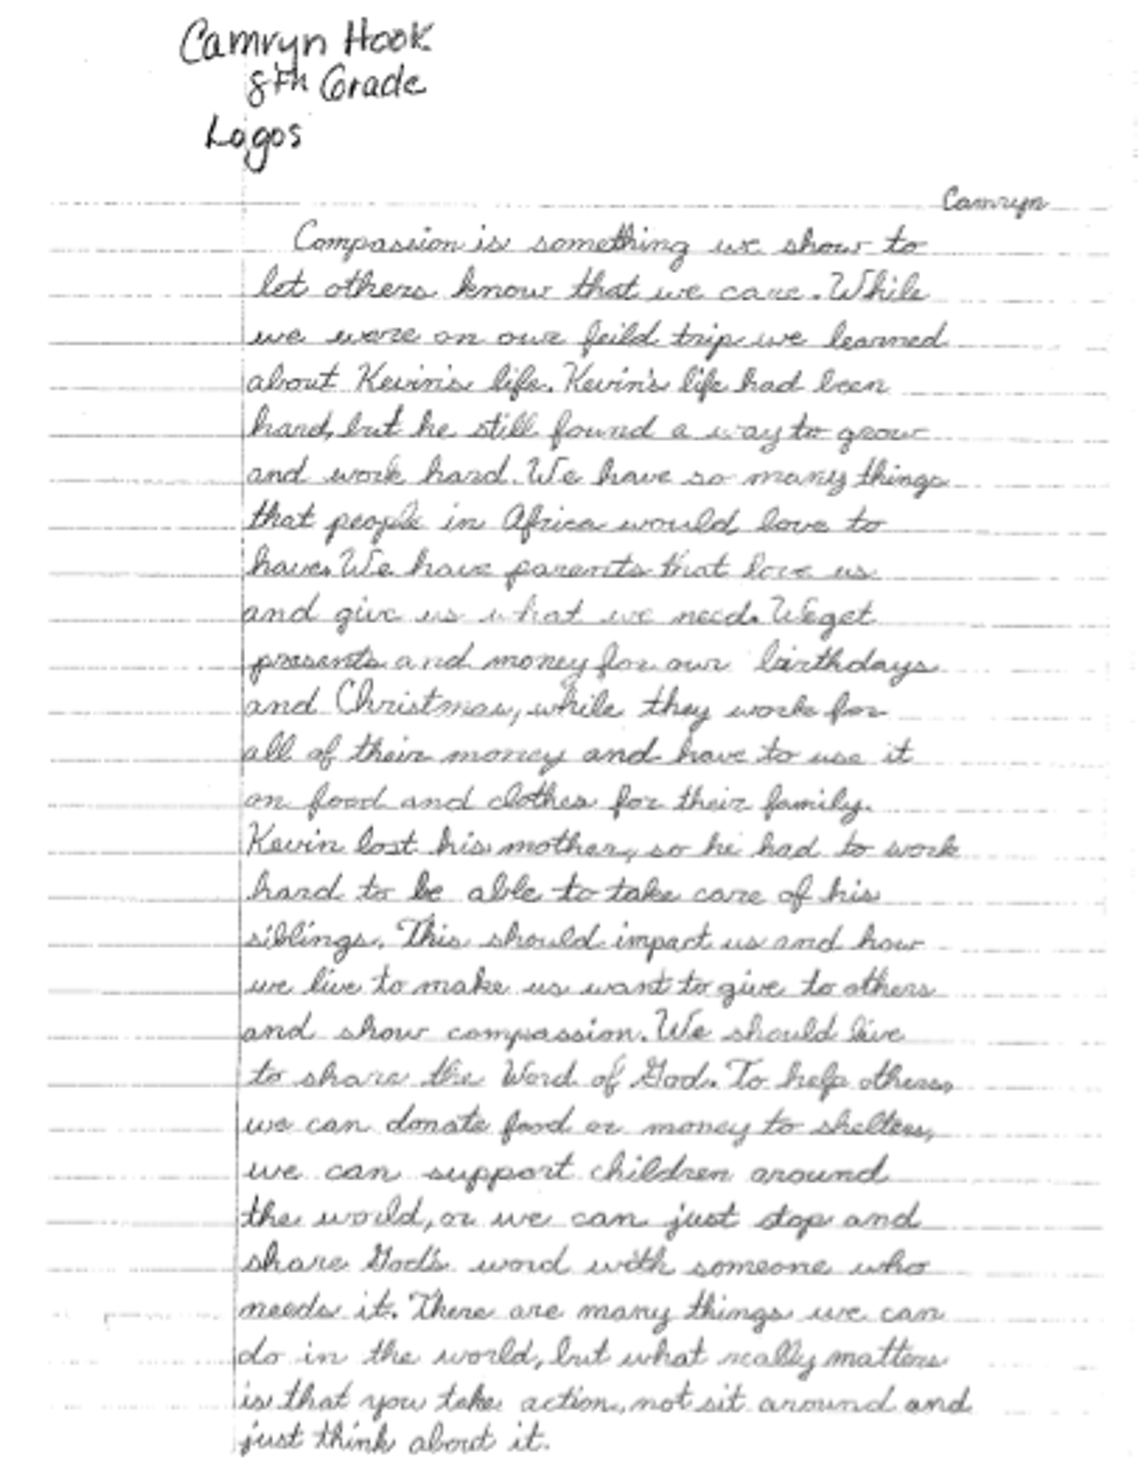 Camryn Hook
8th Grade
Logos
Camryn
Compassion is something we show to
let others know that we care. While
we were on our feild trip we learned
about Kevin's life. Kevin's life had been
hard, but he still found a way to grow
and work hard. We have so many things
that people in Africa would love to
have. We have parents that love us
and give us what we need. We get
presents and money for our birthdays
and Christmas, while they work for
all of their money and have to use it
on food and clothes for their family.
Kevin lost his mother, so he had to work
hard to be able to take care of his
siblings. This should impact us and how
we live to make us want to give to others
and show compassion. We should live
to share the Word of God. To help others,
we can donate food or money to shelters,
we can support children around
the world, or we can just stop and
share God's word with someone who
needs it. There are many things we can
do in the world, but what really matters
is that you take action, not sit around and
just think about it.